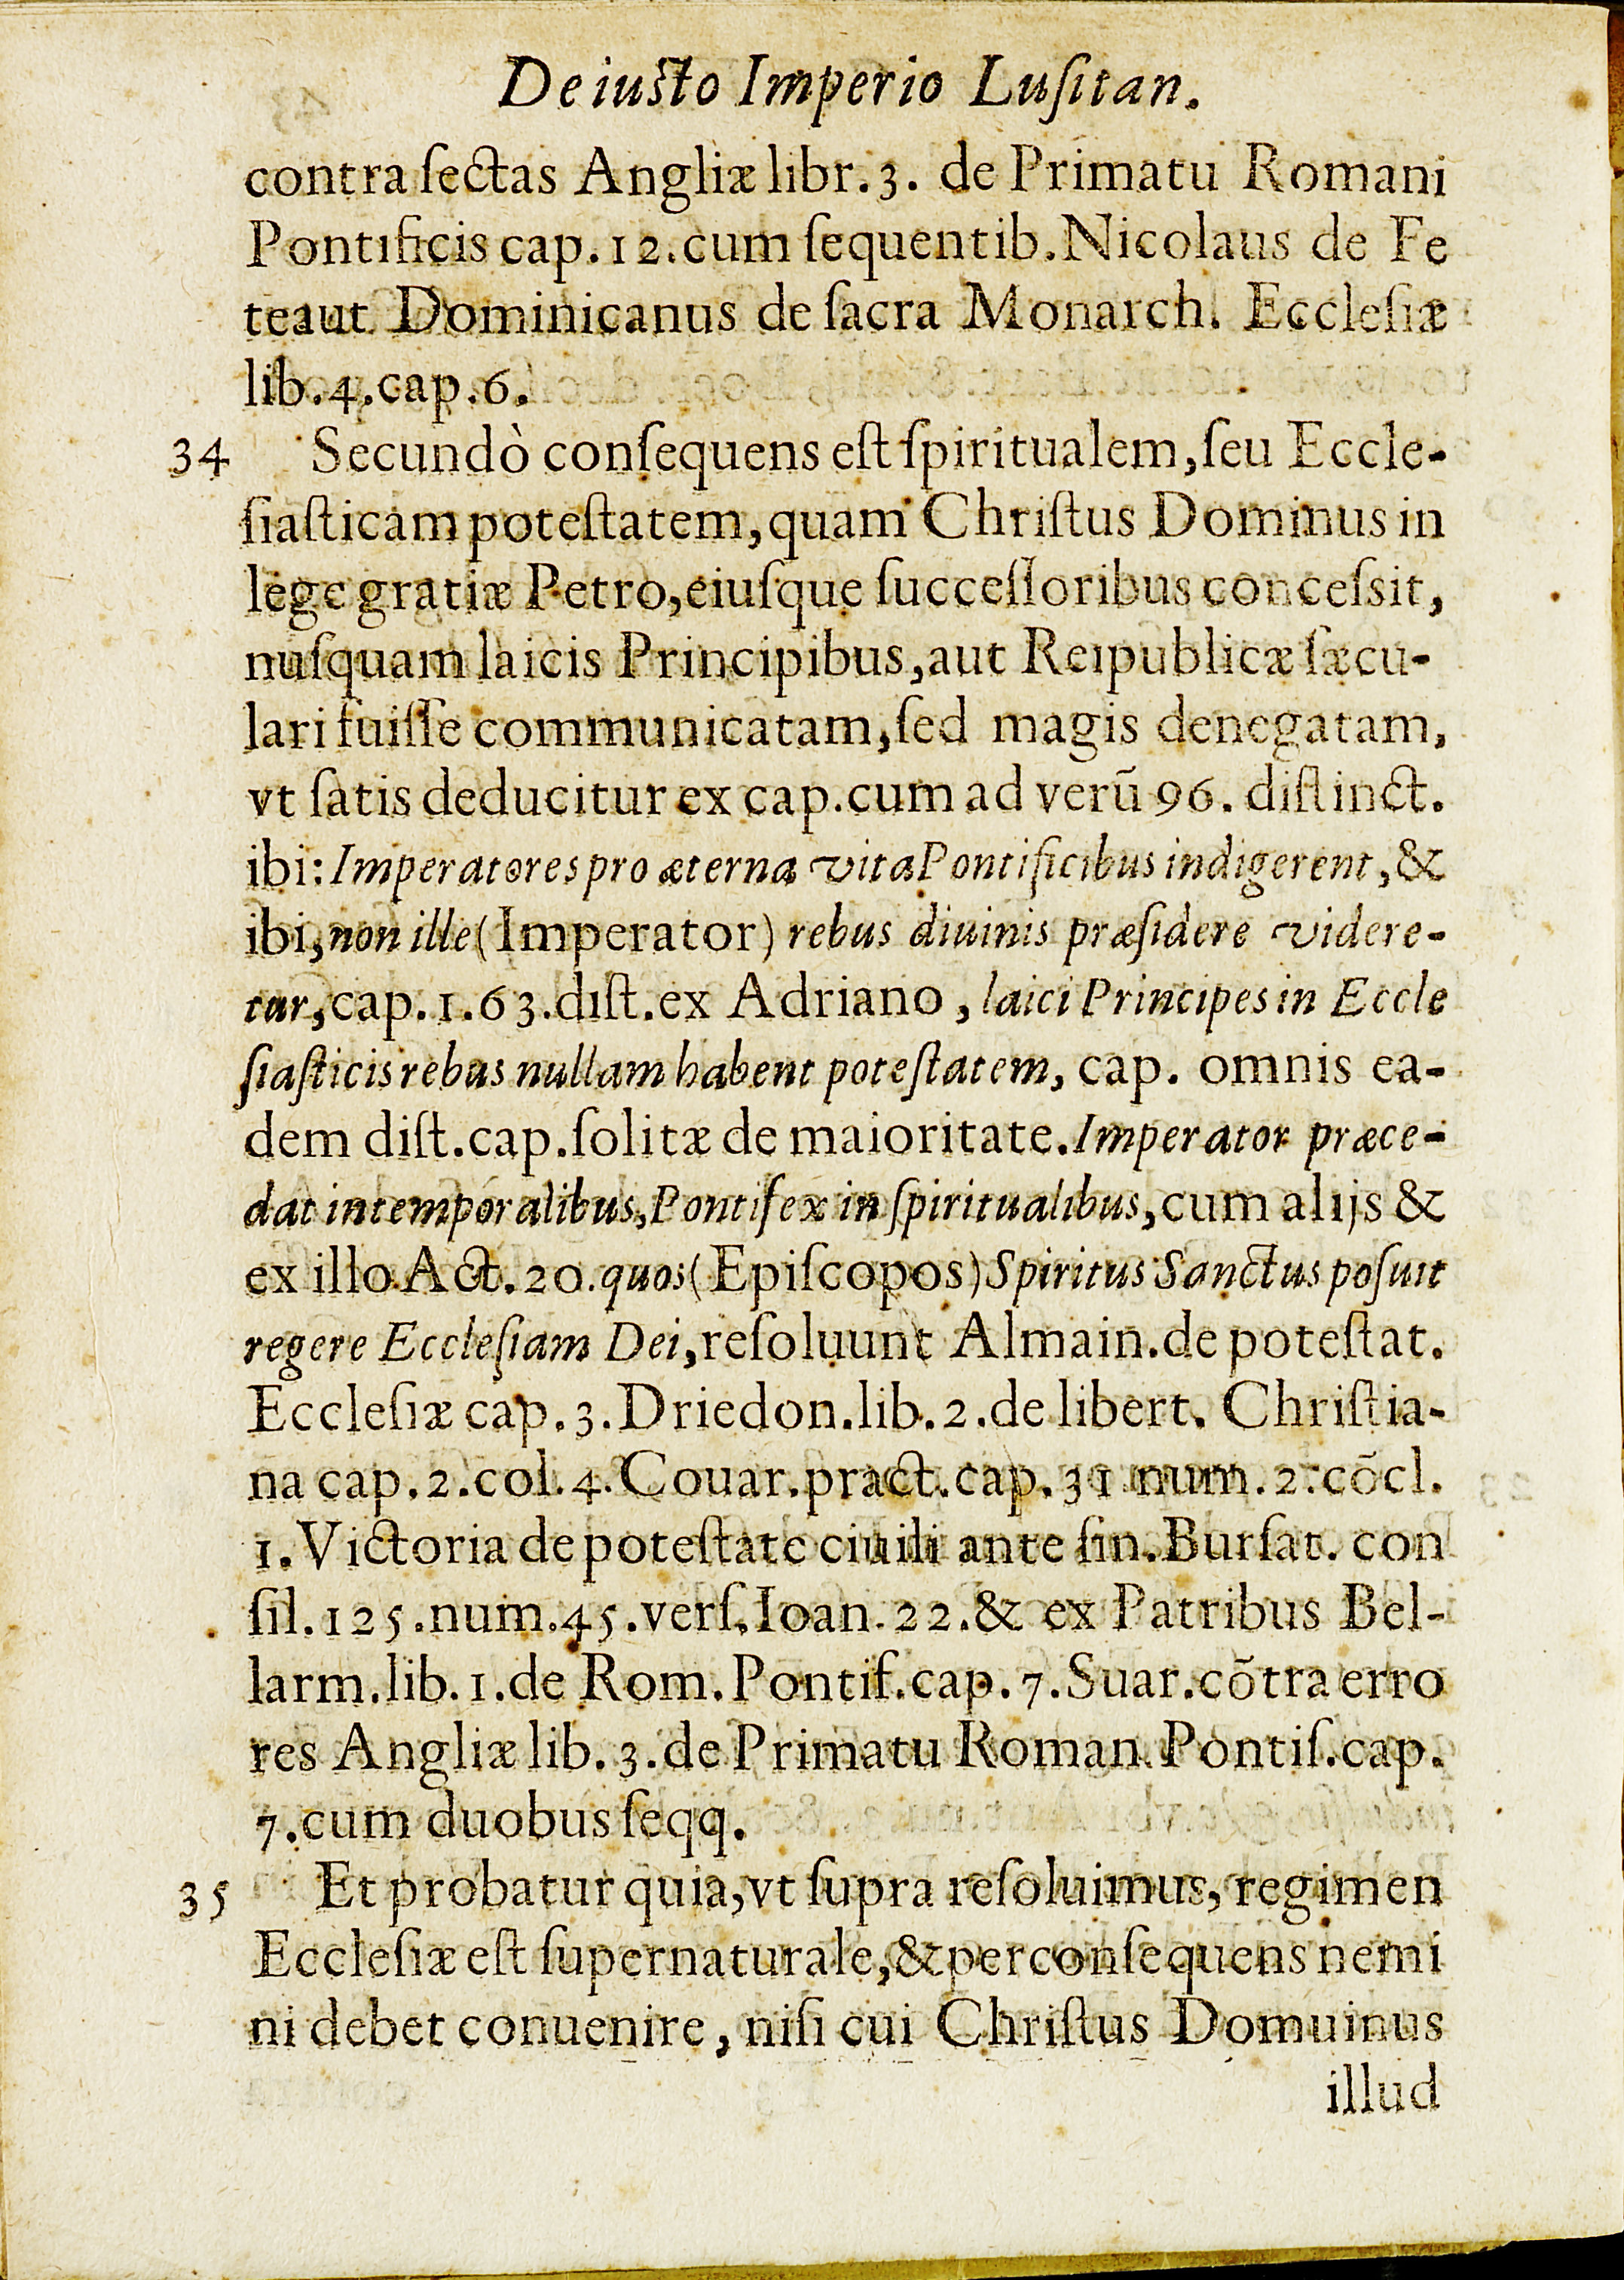 De iusto Imperio Lusitan.
contra ſectas Angliæ libr.3. de Primatu Romani
Pontificis cap.12.cum ſequentib.Nicolaus de Fe
teaut Dominicanus de ſacra Monarch. Eccleſiæ
lib.4.cap.6.
34 Secundò conſequens eſt ſpiritualem,ſeu Eccle-
ſiaſticam poteſtatem,quam Chriſtus Dominus in
lege gratiæ Petro,eiuſque ſucceſſoribus conceſsit,
nuſquam laicis Principibus,aut Reipublicæ ſæcu-
lari fuiſſe communicatam,ſed magis denegatam,
vt ſatis deducitur ex cap.cum ad verũ 96. diſtinct.
ibi: Imperatores pro æterna vita Pontificibus indigerent,&
ibi,non ille(Imperator) rebus diuinis præſidere videre-
tur,cap.1.63.diſt.ex Adriano, laici Principes in Eccle
ſiaſticis rebus nullam habent poteſtatem, cap. omnis ea-
dem diſt.cap.ſolitæ de maioritate.Imperator præce-
dat in temporalibus,Pontifex in ſpiritualibus,cum alijs &
ex illo Act.20.quos(Epiſcopos)Spiritus Sanctus poſuit
regere Eccleſiam Dei,reſoluunt Almain.de poteſtat.
Eccleſiæ cap.3.Driedon.lib.2.de libert. Chriſtia-
na cap.2.col.4.Couar.pract.cap.31 num.2.cõcl.
1.Victoria de poteſtate ciuili ante fin.Burſat. con
ſil.125.num.45.verſ.Ioan.22.& ex Patribus Bel-
larm.lib.1.de Rom.Pontif.cap.7.Suar.cõtra erro
res Angliæ lib.3.de Primatu Roman.Pontiſ.cap.
7.cum duobus ſeqq.
35 Et probatur quia,vt ſupra reſoluimus, regimen
Eccleſiæ eſt ſupernaturale,& per conſequens nemi
ni debet conuenire, niſi cui Chriſtus Domuinus
illud